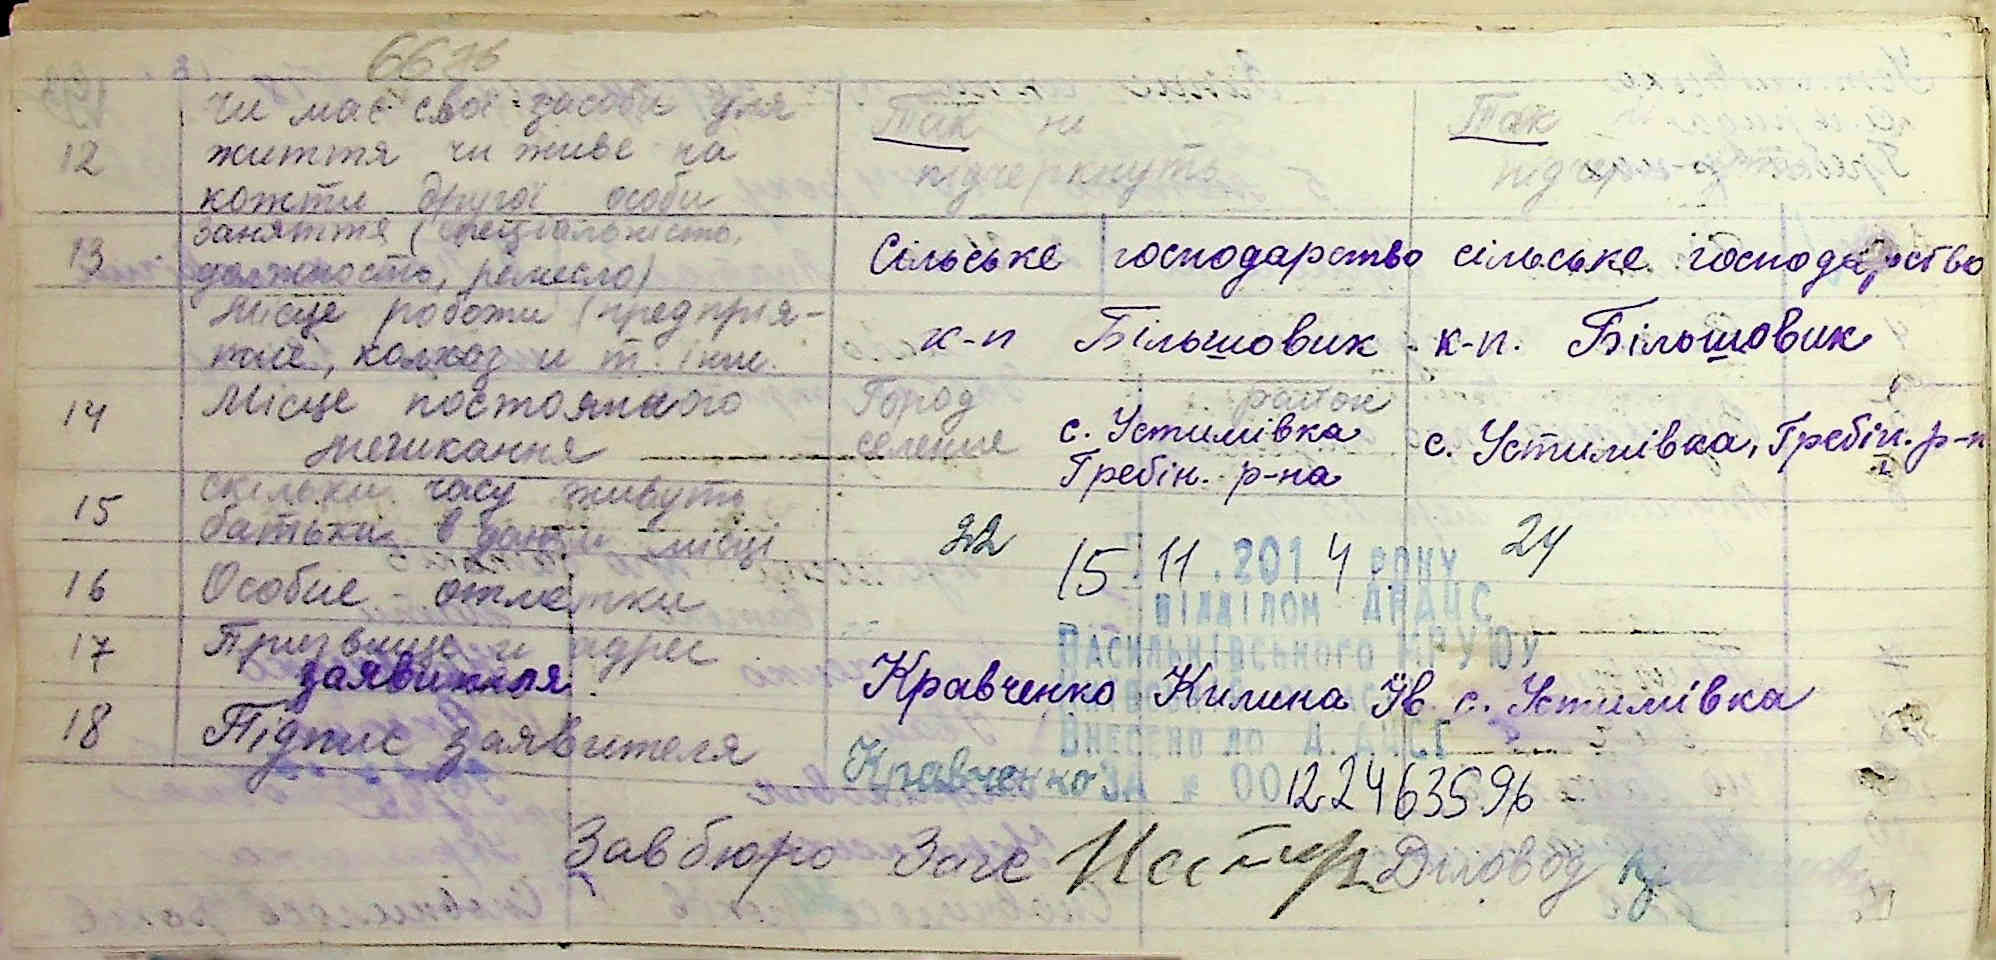 66 зв
12 Чи має свої засоби для Так ні Так
життя чи живе на підчеркнуть
кожтм другої особи
13 заняття (спеціальність, Сільське господарство сільське господарство
должность, ремесло)
Місце роботи (предприя- к-п Більшовик к-п. Більшовик
тие, колхоз и т. інш.
14 Місце постоянного Город район
жетикання селение с. Устимівка с. Устимівка, Гребін. р-н
Гребін. р-на
15 Скільки часу живуть 22 24
батьки в даній місці
15 11 .2014 РОКУ
16 Особые отметки
ВІДДІЛОМ ДРАЦС
17 Призвище и адрес ВАСИЛЬКІВСЬКОГО МРУЮУ
заявителя Кравченко Килина Ів. с. Устимівка
18 Підпис заявителя ВНЕСЕНО ДО
Кравченко ЗА № 00122463596
Зав бюро Загс Діловод